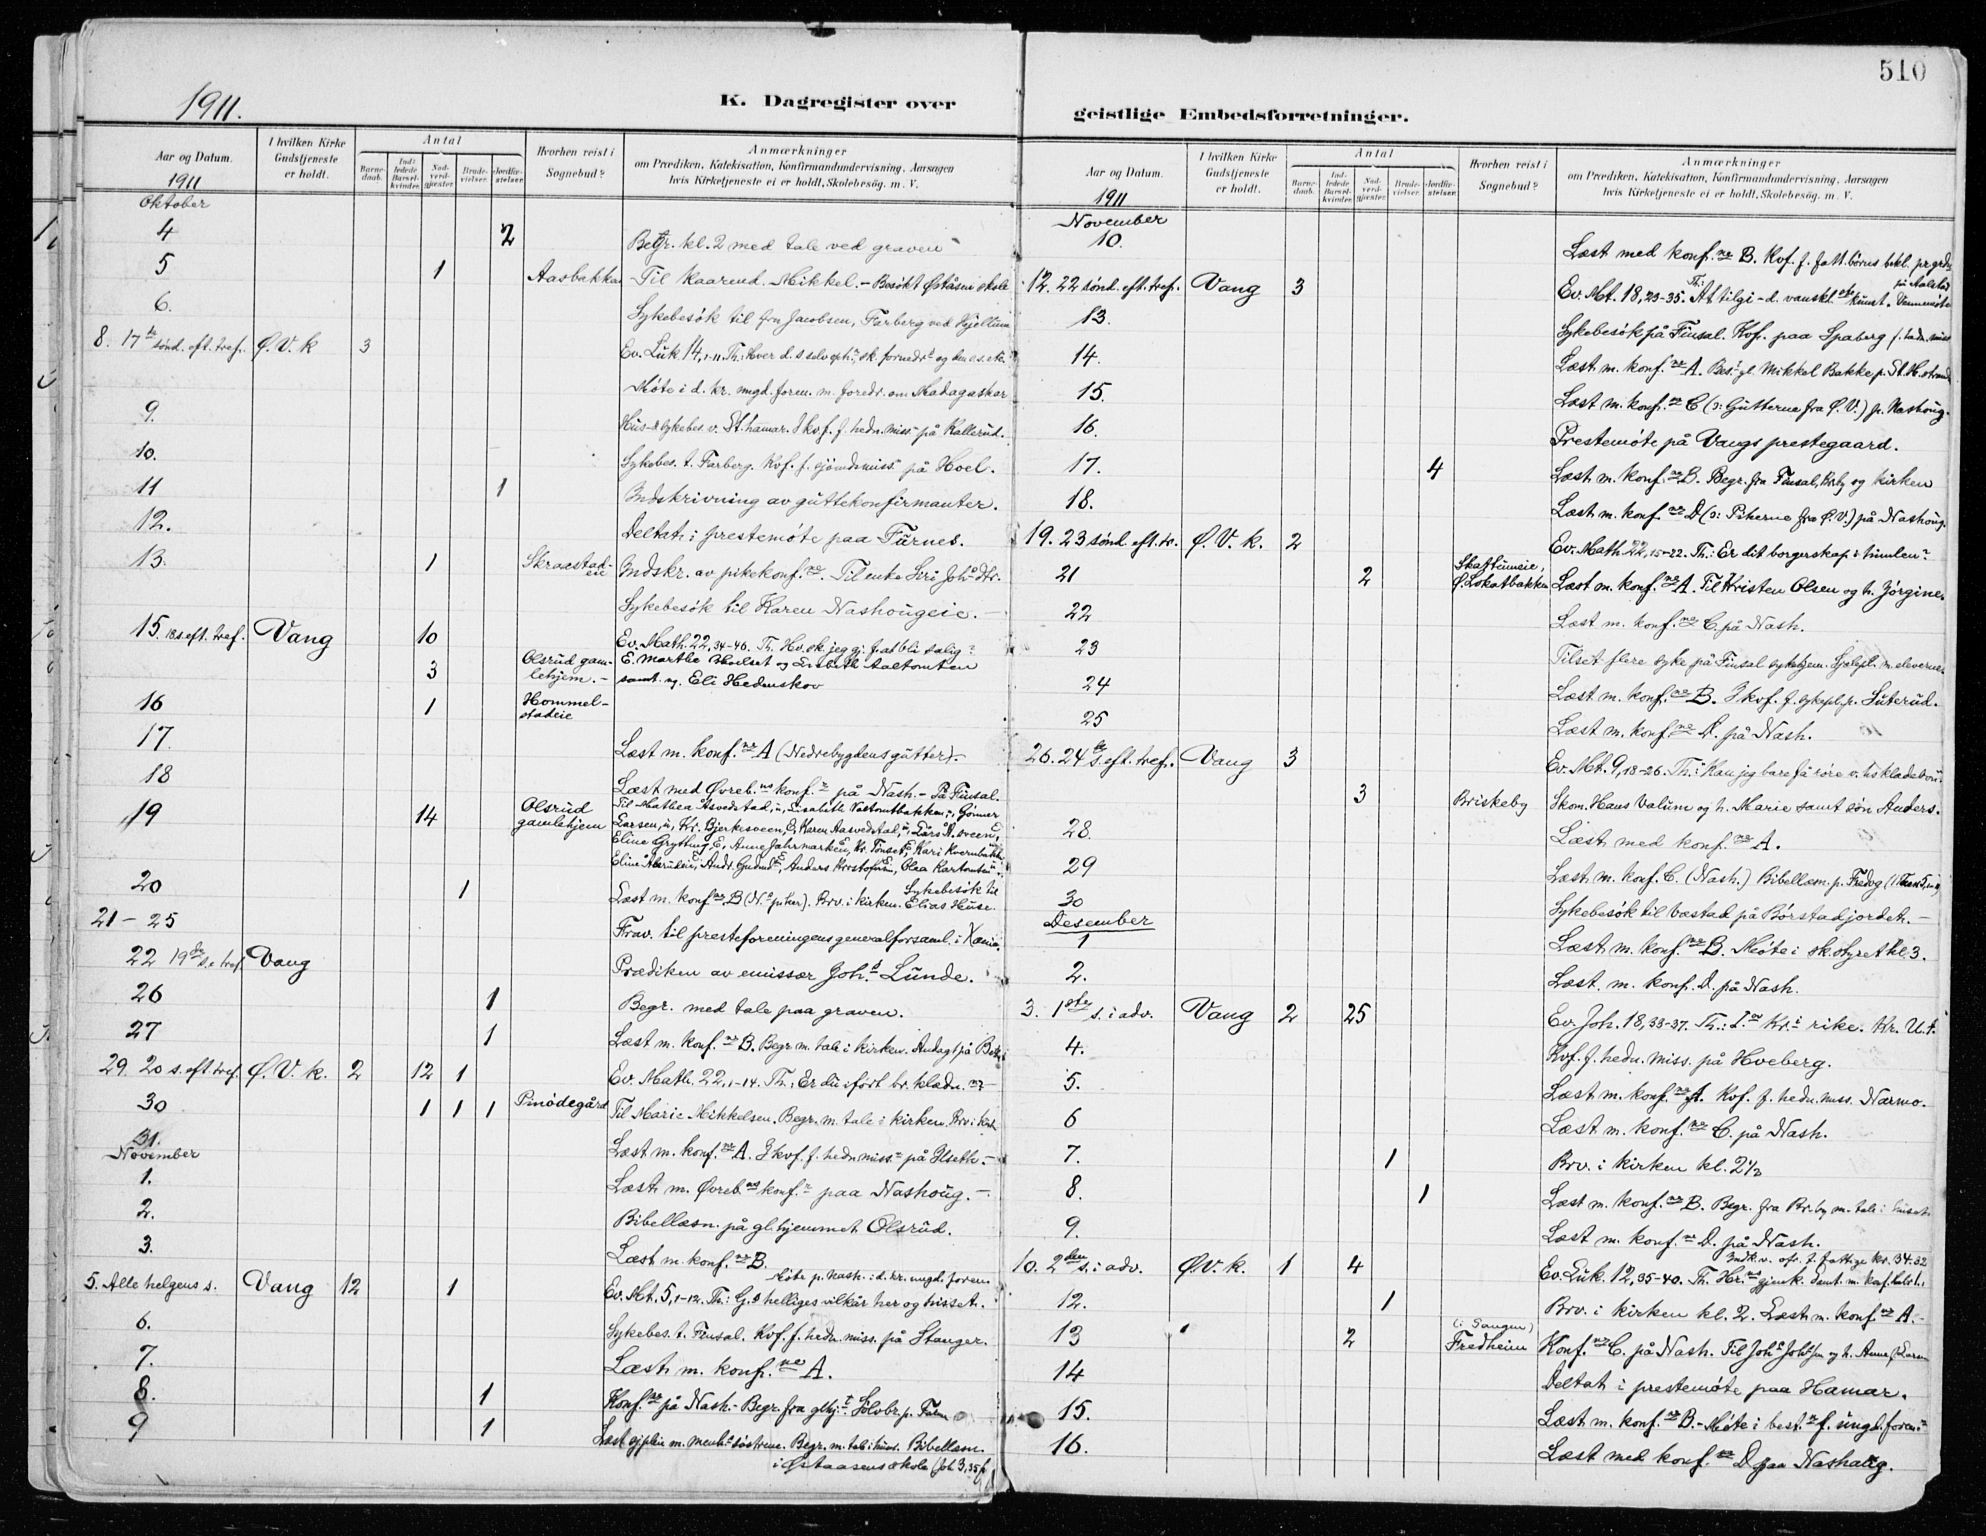 510
1911.
K. Dagregister over
geistlige Embedsforretninger.
Aar og Datum.
I hvilken Kirke Gudstjeneste er holdt.
Antal
Barnedaab.
Indledede Barselkvinder.
Nadverdgjæster.
Brudevielser.
Jordfæstelser.
Hvorhen reist i Sognebud?
Anmærkninger
om Prædiken, Katekisation, Konfirmandundervisning, Aarsagen
hvis Kirketjeneste ei er holdt, Skolebesøg. m. V.
1911
Oktober
4 2 Begr. kl. 2 med tale ved graven
5 1 Aasbakken Til kaarend. Mikkel. - Besøkt Øståsen skole
6. Sykebesøk til fru Jacobsen, Farberg ved Hjellum
8. 17de sønd. eft. tref. Ø. V. k 3 Ev. Luk 14, 1-11. Th: Hver d. s selv oph.
Møte i d. kr. ungd. foren. m. foredr. om Madagaskar
9. Hus- & sykebes. v. St. hamar. I kvf. f. hedn. miss. på Kallerud.
10. Sykebes. t. Farberg. Kvf. f. sjømdsmiss. på Hoel.
11 1 Indskrivning av guttekonfirmanter.
12. Deltat i prestemøte paa Furnes.
13. 1 Skraastad-eie Indskr. av pikekonf.ne. Til enke Siri Joh.dtr.
Sykebesøk til Karen Nashougeie.
15. 18 s. eft. tref. Vang 10 Ev. Math. 22, 34-46. Th. Hv. sk. jeg gj. f. at bli salig?
3 Olsrud gamlehjem. E. Marthe Hoelset og Lisbeth Aaltomten
samt og Eli Hedenskov
16 1 Hommelstadeie
17. Læst m. konf.ne A (Nedrebygdens gutter).
18 Læst med Øvreb.ns konf.r på Nash. - På Finsal.
19 14 Olsrud gamlehjem Til Mathea Asvedstad, Lisabeth Vestmtbakken, Gunnar
Larsen, Kr. Bjerkesveen, Karen Aasvedstad, Lars
Eline Grytting, Anne Jahrmarken, Kr. Tønset, Kari Kvernbakk
Anders Kristofersen, Olea
20 1 Læst m. konf.ne B (N. piker). Brv. i kirken. Sykebesøk til Elias Huse.
21 - 25 Frav. til presteforeningens generalforsaml. i Kania.
22 19de s. e. tref. Vang Prædiken av emissær Joh.s Lunde.
26 1 Begr. med tale paa graven.
27 1 Læst m. konf.ne B. Begr. m. tale i kirken. Andagt på
29. 20 s. eft tref. Ø. V. k. 2 12 1 Ev. Math. 22, 1-14. Th: Er du iført br. klædn.
30 1 1 1 Pinødegård Til Marie Mikkelsen. Begr. m. tale i kirken. Brv. i kirk.
31. Læst m. konf.ne A. I kvf. f. hedn. miss. på Ilseth.
November
1. Læst m. Øvreb.ns konf.r paa Nashoug.
2. Bibellæsn. på gl. hjemmet Olsrud.
3. Læst m. konf.ne B.
Møte p. Nash. i d. kr. ungd. foren.
5. Alle helgens s. Vang 12 1 Ev. Mt. 5, 1-12. Th: G.s helliges vilkår her og hisset.
6. Sykebes. t. Finsal. Kvf. f. hedn. miss. på Stanger.
7. Læst m. konf.ne A.
8. 1 Konf.ne på Nash. - Begr. fra glhj.t Sølvbr. p.
9 1 Læst m. menh.s søstrene. Begr. m. tale i huset. Bibellæsn.
i Østaasens skole (Joh 3, 35 f.
Aar og Datum.
I hvilken Kirke Gudstjeneste er holdt.
Antal
Barnedaab.
Indledede Barselkvinder.
Nadverdgjæster.
Brudevielser.
Jordfæstelser.
Hvorhen reist i Sognebud?
Anmærkninger
om Prædiken, Katekisation, Konfirmandundervisning, Aarsagen
hvis Kirketjeneste ei er holdt, Skolebesøg. m. V.
1911
November
10. Læst med konf.ne B. Kvf. f. fatt. børns bekl.
på Aalstad
12. 22 sønd. eft. tref. Vang 3 Ev. Mt. 18, 23-35. Th: At tilgi - d. vanskl.ste kunst.
13. Sykebesøk på Finsal. Kvf. paa Spaberg
14. Læst m. konf.ne A. Bes. gl. Mikkel Bakke p. St. H. strand
15. Læst m. konf.ne C (ɔ: Gutterne fra Ø. V.) p. Nashoug.
16. Prestemøte på Vangs prestegaard.
17. 4 Læst m. konf.ne B. Begr. fra Finsal, Brby og kirken
18. Læst m. konf.ne D (ɔ: Pikerne fra Ø. V.) på Nashoug.
19. 23 sønd. eft. tr. Ø. V. k. 2 Ev. Math 22, 15-22. Th.: Er dit borgerskap i himlen?
21 2 Skattumeie, Ø. Lokatbakken Læst m. konf.ne A. Til Kristen Olsen og h. Jørgine.
22 Læst m. konf.ne C. på Nash.
23 Tilset flere syke på Finsal sykehjem. Sjælepl. m. eleverne
24 Læst m. konf.ne B. I kvf. f. sykepl. p. Suterud.
25 Læst m. konf.ne D. på Nash.
26. 24de s. eft. tref. Vang 3 Ev. Mt. 9, 18-26. Th.: Kan jeg bare få røre v. hs klædebon
3 Briskeby Skom. Hans Valum og h. Marie samt søn Anders.
28. Læst med konf.ne A.
29 Læst m. konf. C. (Nash.) Bibellæsn. p. Fredvg
30 Sykebesøk til Væstad på Børstadjordet.
Desember
1 Læst m. konf.ne B. Møte i sk. styret kl. 3.
2. Læst m. konf. D. på Nash.
3. 1ste s. i adv. Vang 2 25 Ev. Joh. 18, 33-37. Th.: I. rike.
4. Kvf. f. hedn. miss. på Hveberg.
5. Læst m. konf.ne A. Kvf. f. hedn. miss. Nærmo.
6 Læst m. konf.ne C. på Nash.
7. 1 Brv. i kirken kl. 2½
8. 1 Læst m. konf.ne B. Begr. fra Br.by m. tale i huset
9. Læst m. konf.ne D. på Nash.
Indk. v. ofr. f. fattige kr. 34.32
10. 2den s. i adv. Ø. V. k. 1 4 Ev. Luk. 12, 35-40. Th.
12. 1 Brv. i kirken kl. 2. Læst m. konf.ne A.
13 2 (i Sangen) Fredheim Konf.ne C. på Nash. Til Joh.s Joh.sen og h. Anne f. Larsen
14 Deltat i prestemøte paa Hamar.
15. Læst m. konf.ne B. - Møte i best. f. ungd. foren.
16. Læst med konf.ne D paa Nashaug.